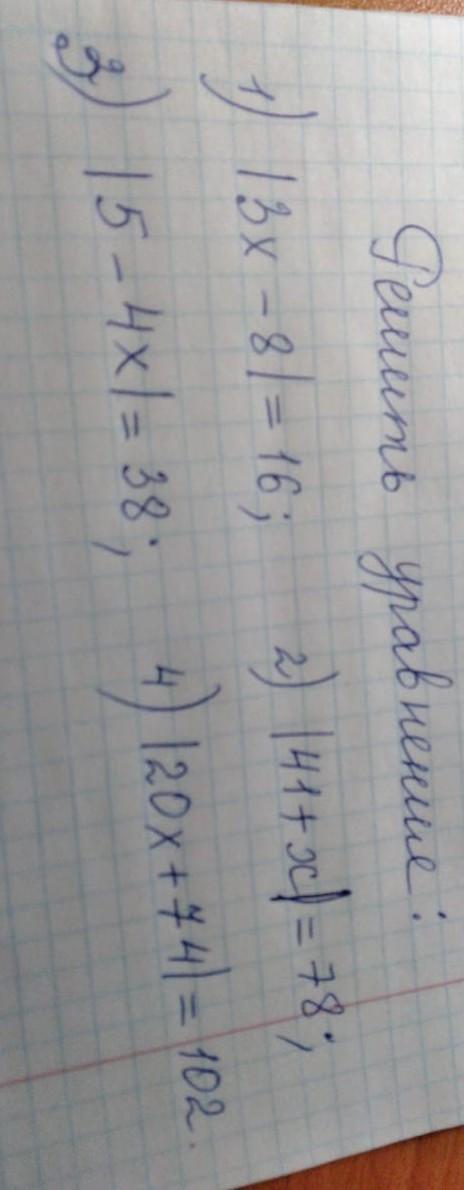 Решить уравнение:
1) |3x - 8| = 16; 2) |41 + x| = 78;
3) |5 - 4x| = 38; 4) |20x + 74| = 102.